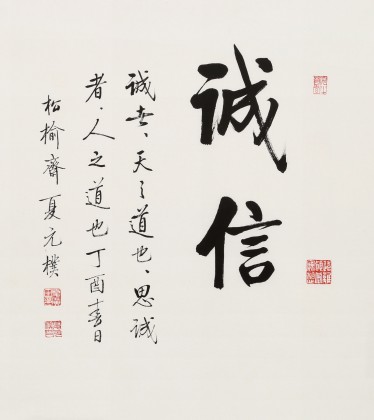 诚信
诚者、天之道也、思诚
者、人之道也丁酉春日
松榆斋夏元朴